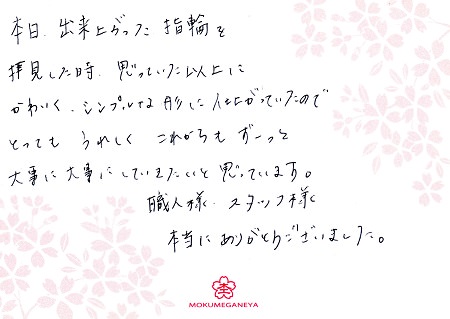 本日、出来上がった指輪を
拝見した時、思っていた以上に
かわいく、シンプルな形に仕上がっていたので
とっても うれしく これからも ずーっと
大事に大事にしていきたいと思っています。
職人様、スタッフ様
本当にありがとうございました。
MOKUMEGANEYA